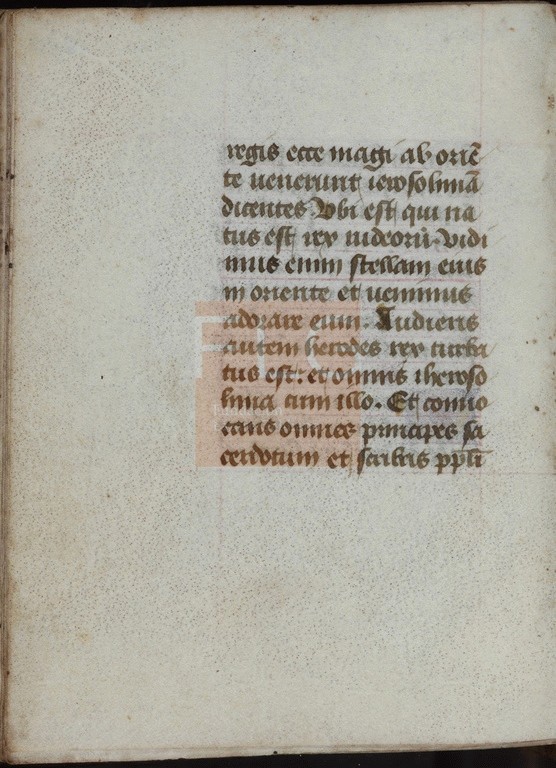 regis ecce magi ab oriē
te uenerunt ierosolimā
dicentes Vbi est qui na
tus est rex iudeorū. vidi
mus enim stellam eius
in oriente et uenimus
adorare eum. Audiens
autem herodes rex turba
tus est: et omnis iheroso
lima cum illo. Et conuo
cans omnes principes sa
cerdotum et scribas ppl̄i